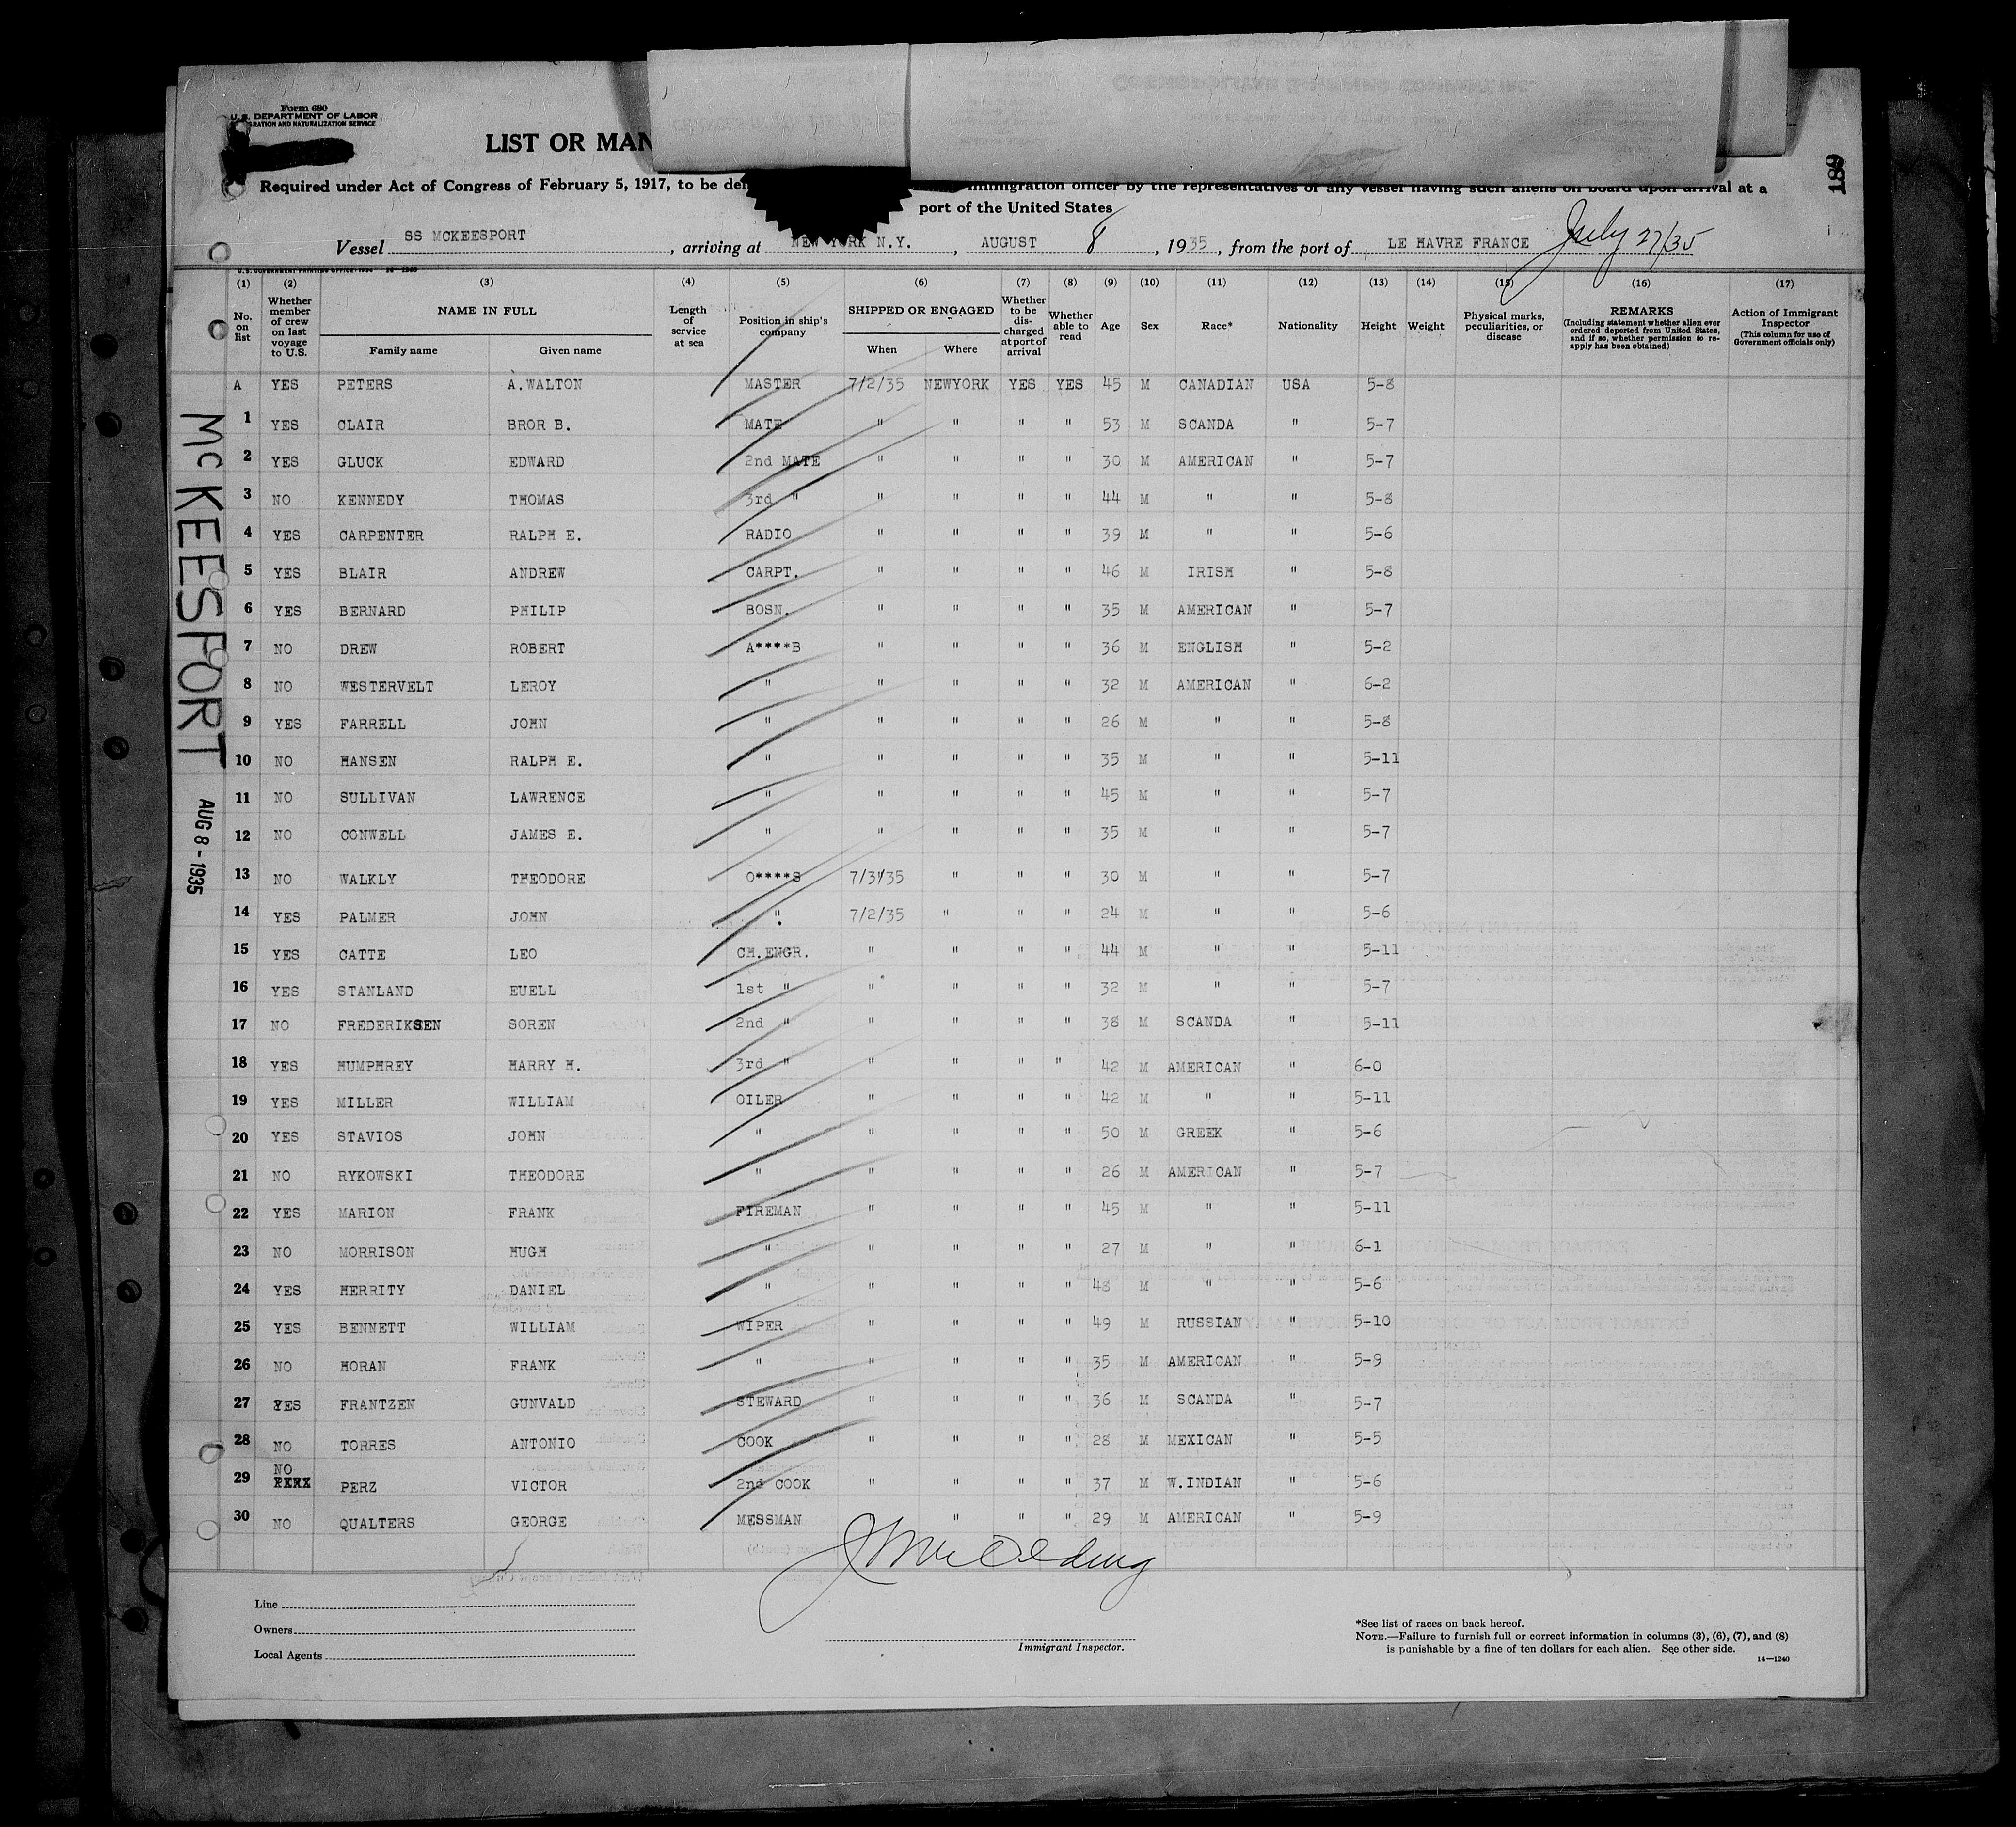 Form 680
U.S. DEPARTMENT OF LABOR
GRATION AND NATURALIZATION SERVICE
LIST OR MAN
COSMOPOLITAN SHIPPING COMPANY, INC.
189
Required under Act of Congress of February 5, 1917, to be del immigration officer by the representatives of any vessel having such aliens on board upon arrival at a
port of the United States
Vessel SS MCKEESPORT, arriving at NEW YORK N.Y., AUGUST 8, 1935, from the port of LE HAVRE FRANCE July 27/35
U.S. GOVERNMENT PRINTING OFFICE: 1934
(1) (2) (3) (4) (5) (6) (7) (8) (9) (10) (11) (12) (13) (14) (15) (16) (17)
No. on list
Whether member of crew on last voyage to U.S.
NAME IN FULL
Family name Given name
Length of service at sea
Position in ship's company
SHIPPED OR ENGAGED
When Where
Whether to be discharged at port of arrival
Whether able to read
Age Sex Race* Nationality Height Weight
Physical marks, peculiarities, or disease
REMARKS
(Including statement whether alien ever ordered deported from United States, and if so, whether permission to re-apply has been obtained)
Action of Immigrant Inspector
(This column for use of Government officials only)
A YES PETERS A.WALTON MASTER 7/2/35 NEWYORK YES YES 45 M CANADIAN USA 5-8
1 YES CLAIR BROR B. MATE " " " " 53 M SCANDA " 5-7
2 YES GLUCK EDWARD 2nd MATE " " " " 30 M AMERICAN " 5-7
3 NO KENNEDY THOMAS 3rd " " " " " 44 M " " 5-8
4 YES CARPENTER RALPH E. RADIO " " " " 39 M " " 5-6
5 YES BLAIR ANDREW CARPT. " " " " 46 M IRISH " 5-8
6 YES BERNARD PHILIP BOSN. " " " " 35 M AMERICAN " 5-7
7 NO DREW ROBERT A****B " " " " 36 M ENGLISH " 5-2
8 NO WESTERVELT LEROY " " " " " 32 M AMERICAN " 6-2
9 YES FARRELL JOHN " " " " " 26 M " " 5-8
10 NO HANSEN RALPH E. " " " " " 35 M " " 5-11
11 NO SULLIVAN LAWRENCE " " " " " 45 M " " 5-7
12 NO CONWELL JAMES E. " " " " " 35 M " " 5-7
13 NO WALKLY THEODORE O****S 7/3/35 " " " 30 M " " 5-7
14 YES PALMER JOHN " 7/2/35 " " " 24 M " " 5-6
15 YES CATTE LEO CH.ENGR. " " " " 44 M " " 5-11
16 YES STANLAND EUELL 1st " " " " " 32 M " " 5-7
17 NO FREDERIKSEN SOREN 2nd " " " " " 38 M SCANDA " 5-11
18 YES HUMPHREY HARRY H. 3rd " " " " " 42 M AMERICAN " 6-0
19 YES MILLER WILLIAM OILER " " " " 42 M " " 5-11
20 YES STAVIOS JOHN " " " " " 50 M GREEK " 5-6
21 NO RYKOWSKI THEODORE " " " " " 26 M AMERICAN " 5-7
22 YES MARION FRANK FIREMAN " " " " 45 M " " 5-11
23 NO MORRISON HUGH " " " " " 27 M " " 6-1
24 YES HERRITY DANIEL " " " " " 48 M " " 5-6
25 YES BENNETT WILLIAM WIPER " " " " 49 M RUSSIAN " 5-10
26 NO HORAN FRANK " " " " " 35 M AMERICAN " 5-9
27 YES FRANTZEN GUNVALD STEWARD " " " " 36 M SCANDA " 5-7
28 NO TORRES ANTONIO COOK " " " " 28 M MEXICAN " 5-5
29 NO PERZ VICTOR 2nd COOK " " " " 37 M W.INDIAN " 5-6
30 NO QUALTERS GEORGE MESSMAN " " " 29 M AMERICAN " 5-9
McKEESPORT
AUG 8 - 1935
Line
Owners
Local Agents
Immigrant Inspector.
*See list of races on back hereof.
NOTE.—Failure to furnish full or correct information in columns (3), (6), (7), and (8)
is punishable by a fine of ten dollars for each alien. See other side.
14—1240